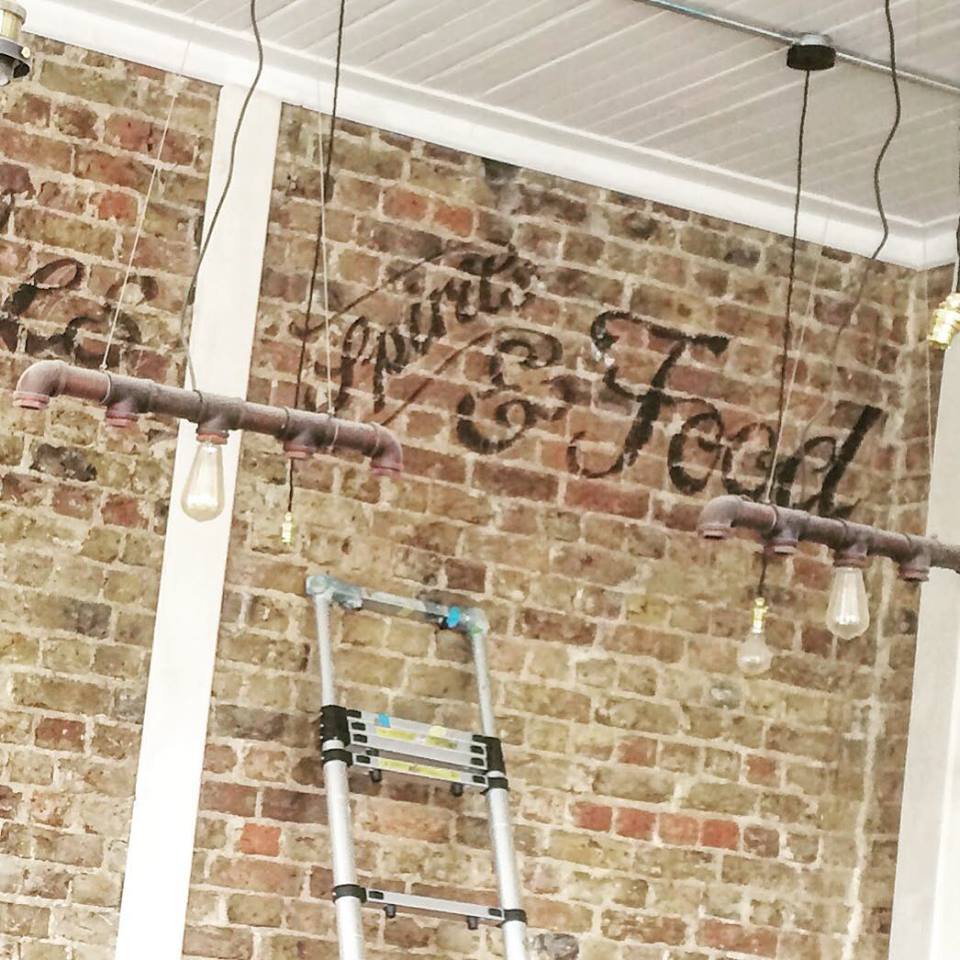 Spirits & Food